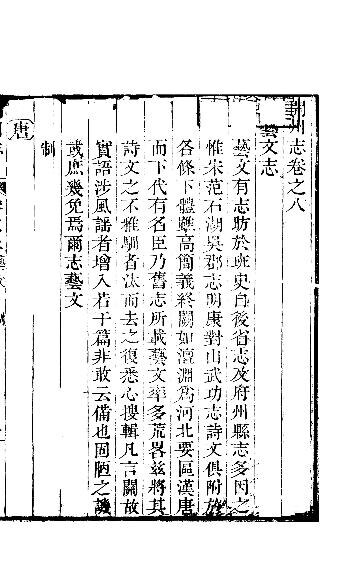 州志卷之八
藝文志
藝文有志昉於班史自後省志及府州縣志多因之
惟宋范石湖吳郡志明康對山武功志詩文俱附於
各條下體雖高簡義終闕如澶淵為河北要區漢唐
而下代有名臣乃舊志所載藝文率多荒畧茲將其
詩文之不雅馴者汰而去之復悉心搜輯凡言關故
實語涉風謠者增入若干篇非敢云備也固陋之譏
或庶幾免焉爾志藝文
制
唐